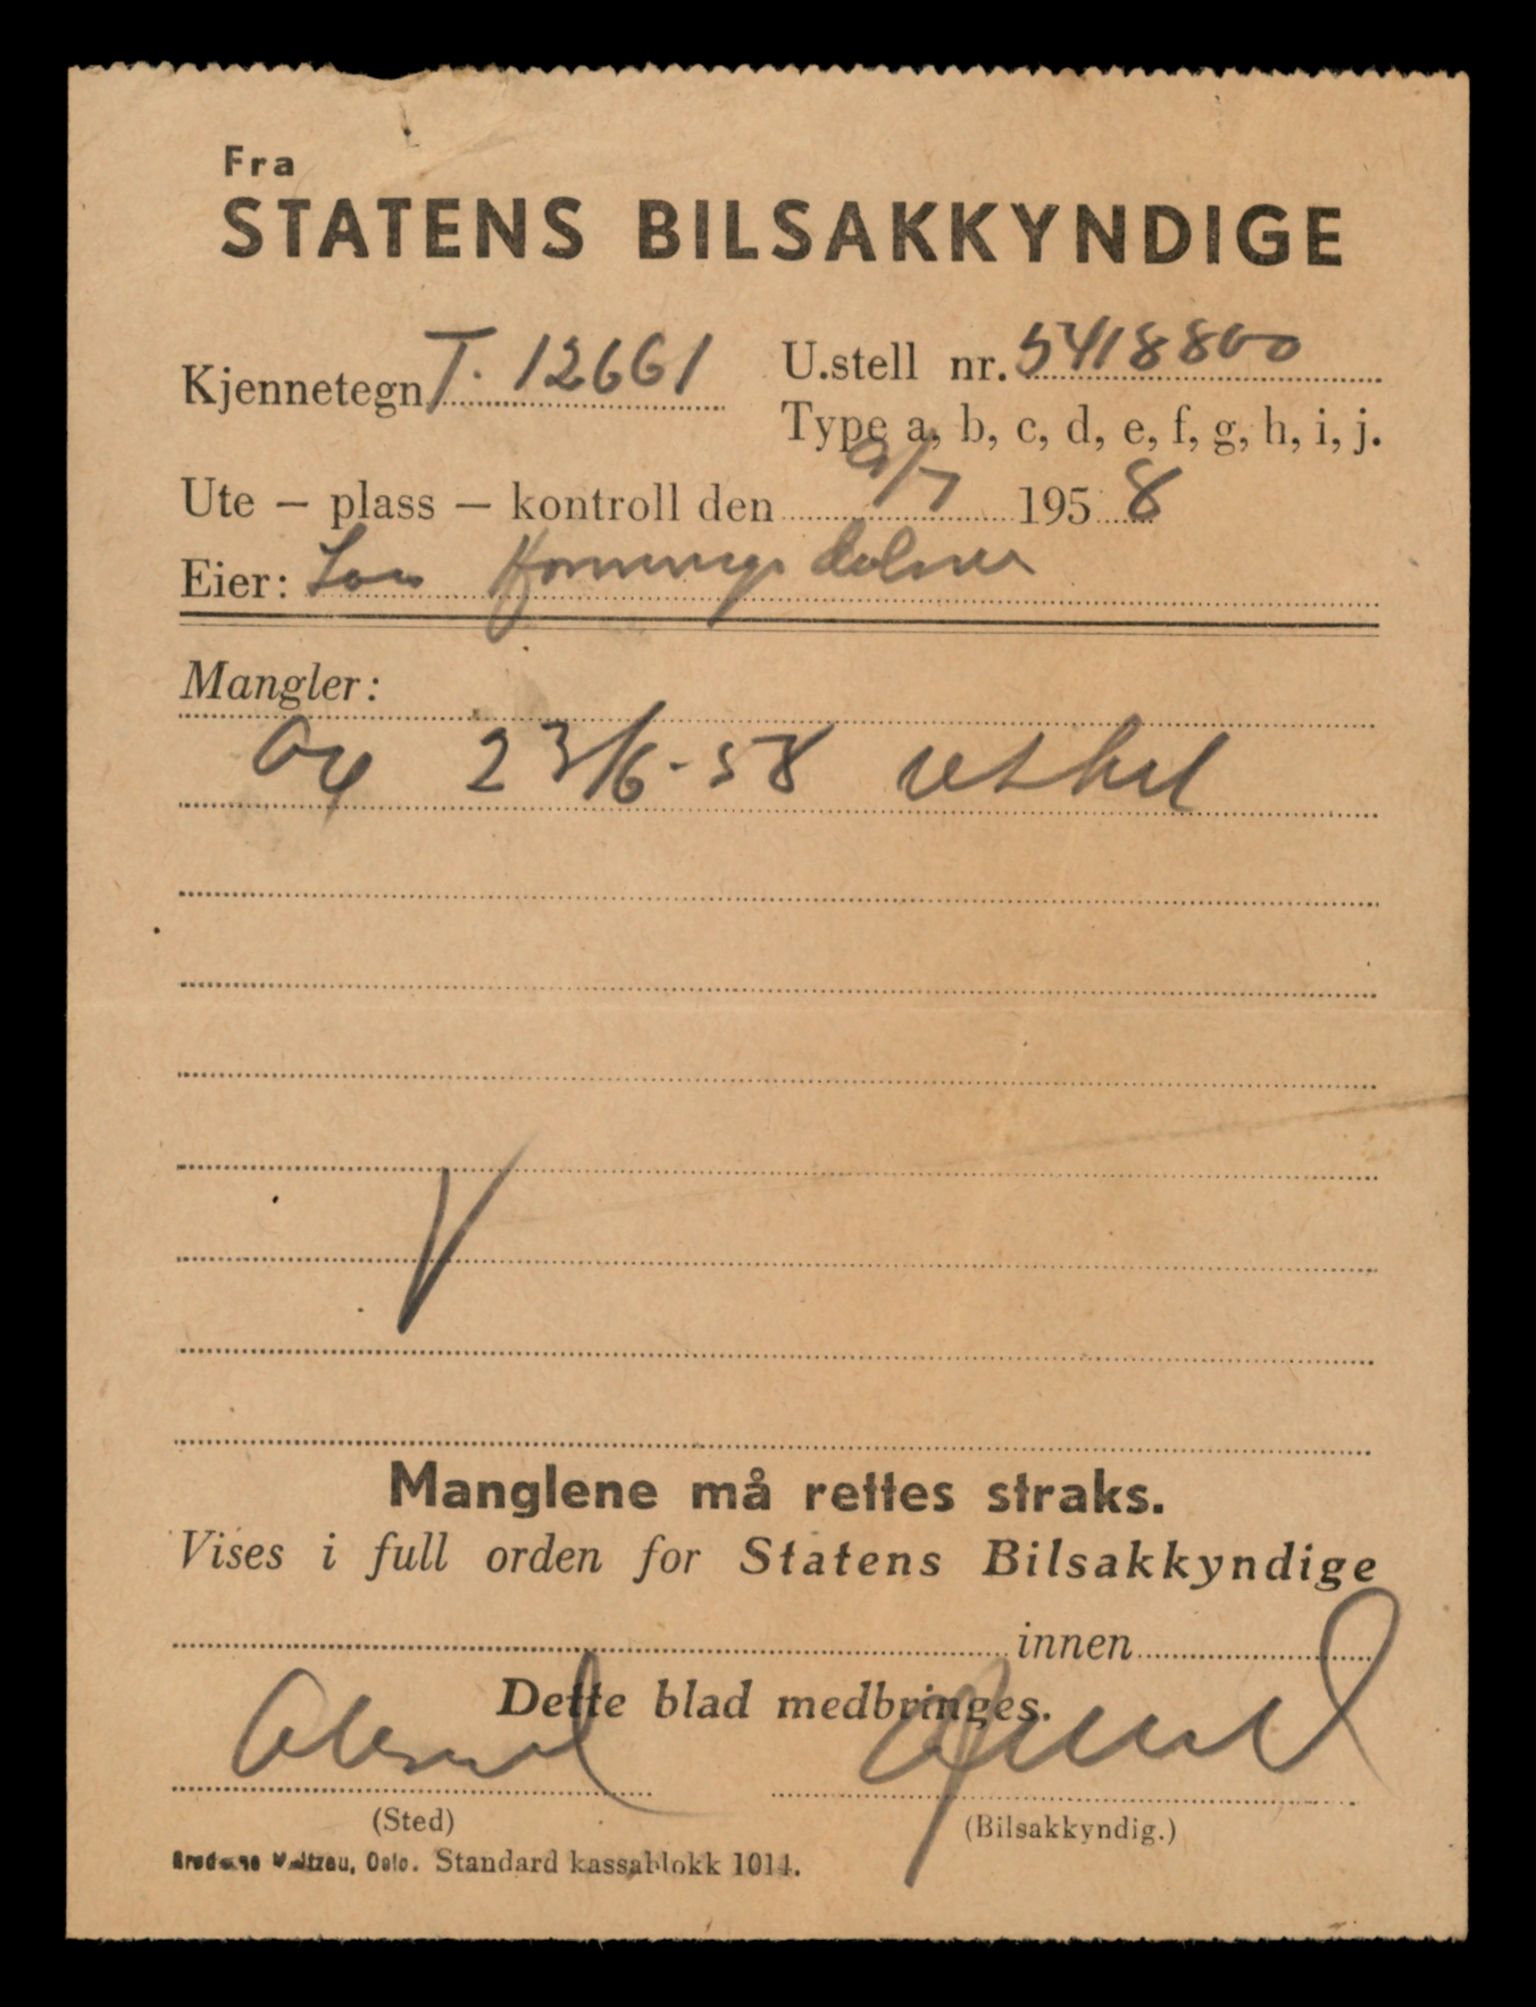 Fra
STATENS BILSAKKYNDIGE
Kjennetegn T. 12661
U.stell nr. 5418800
Type a, b, c, d, e, f, g, h, i, j.
Ute – plass – kontroll den 9/7 1958
Eier:
Mangler:
23/6-58
Manglene må rettes straks.
Vises i full orden for Statens Bilsakkyndige
innen
Dette blad medbringes.
(Sted)
(Bilsakkyndig.)
Oslo. Standard kassablokk 1014.